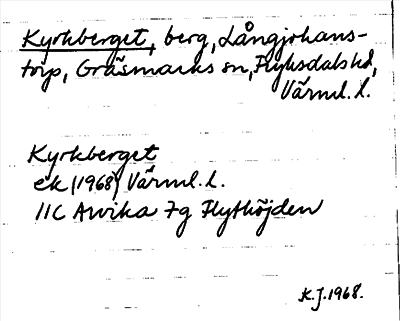 Kyrkberget, berg, Långjohans-
torp, Gräsmarks sn, Fryksdals hd,
Värml. l.
Kyrkberget
ek (1968) Värml. l.
11C Arvika 7g Flythöjden
K.J. 1968.